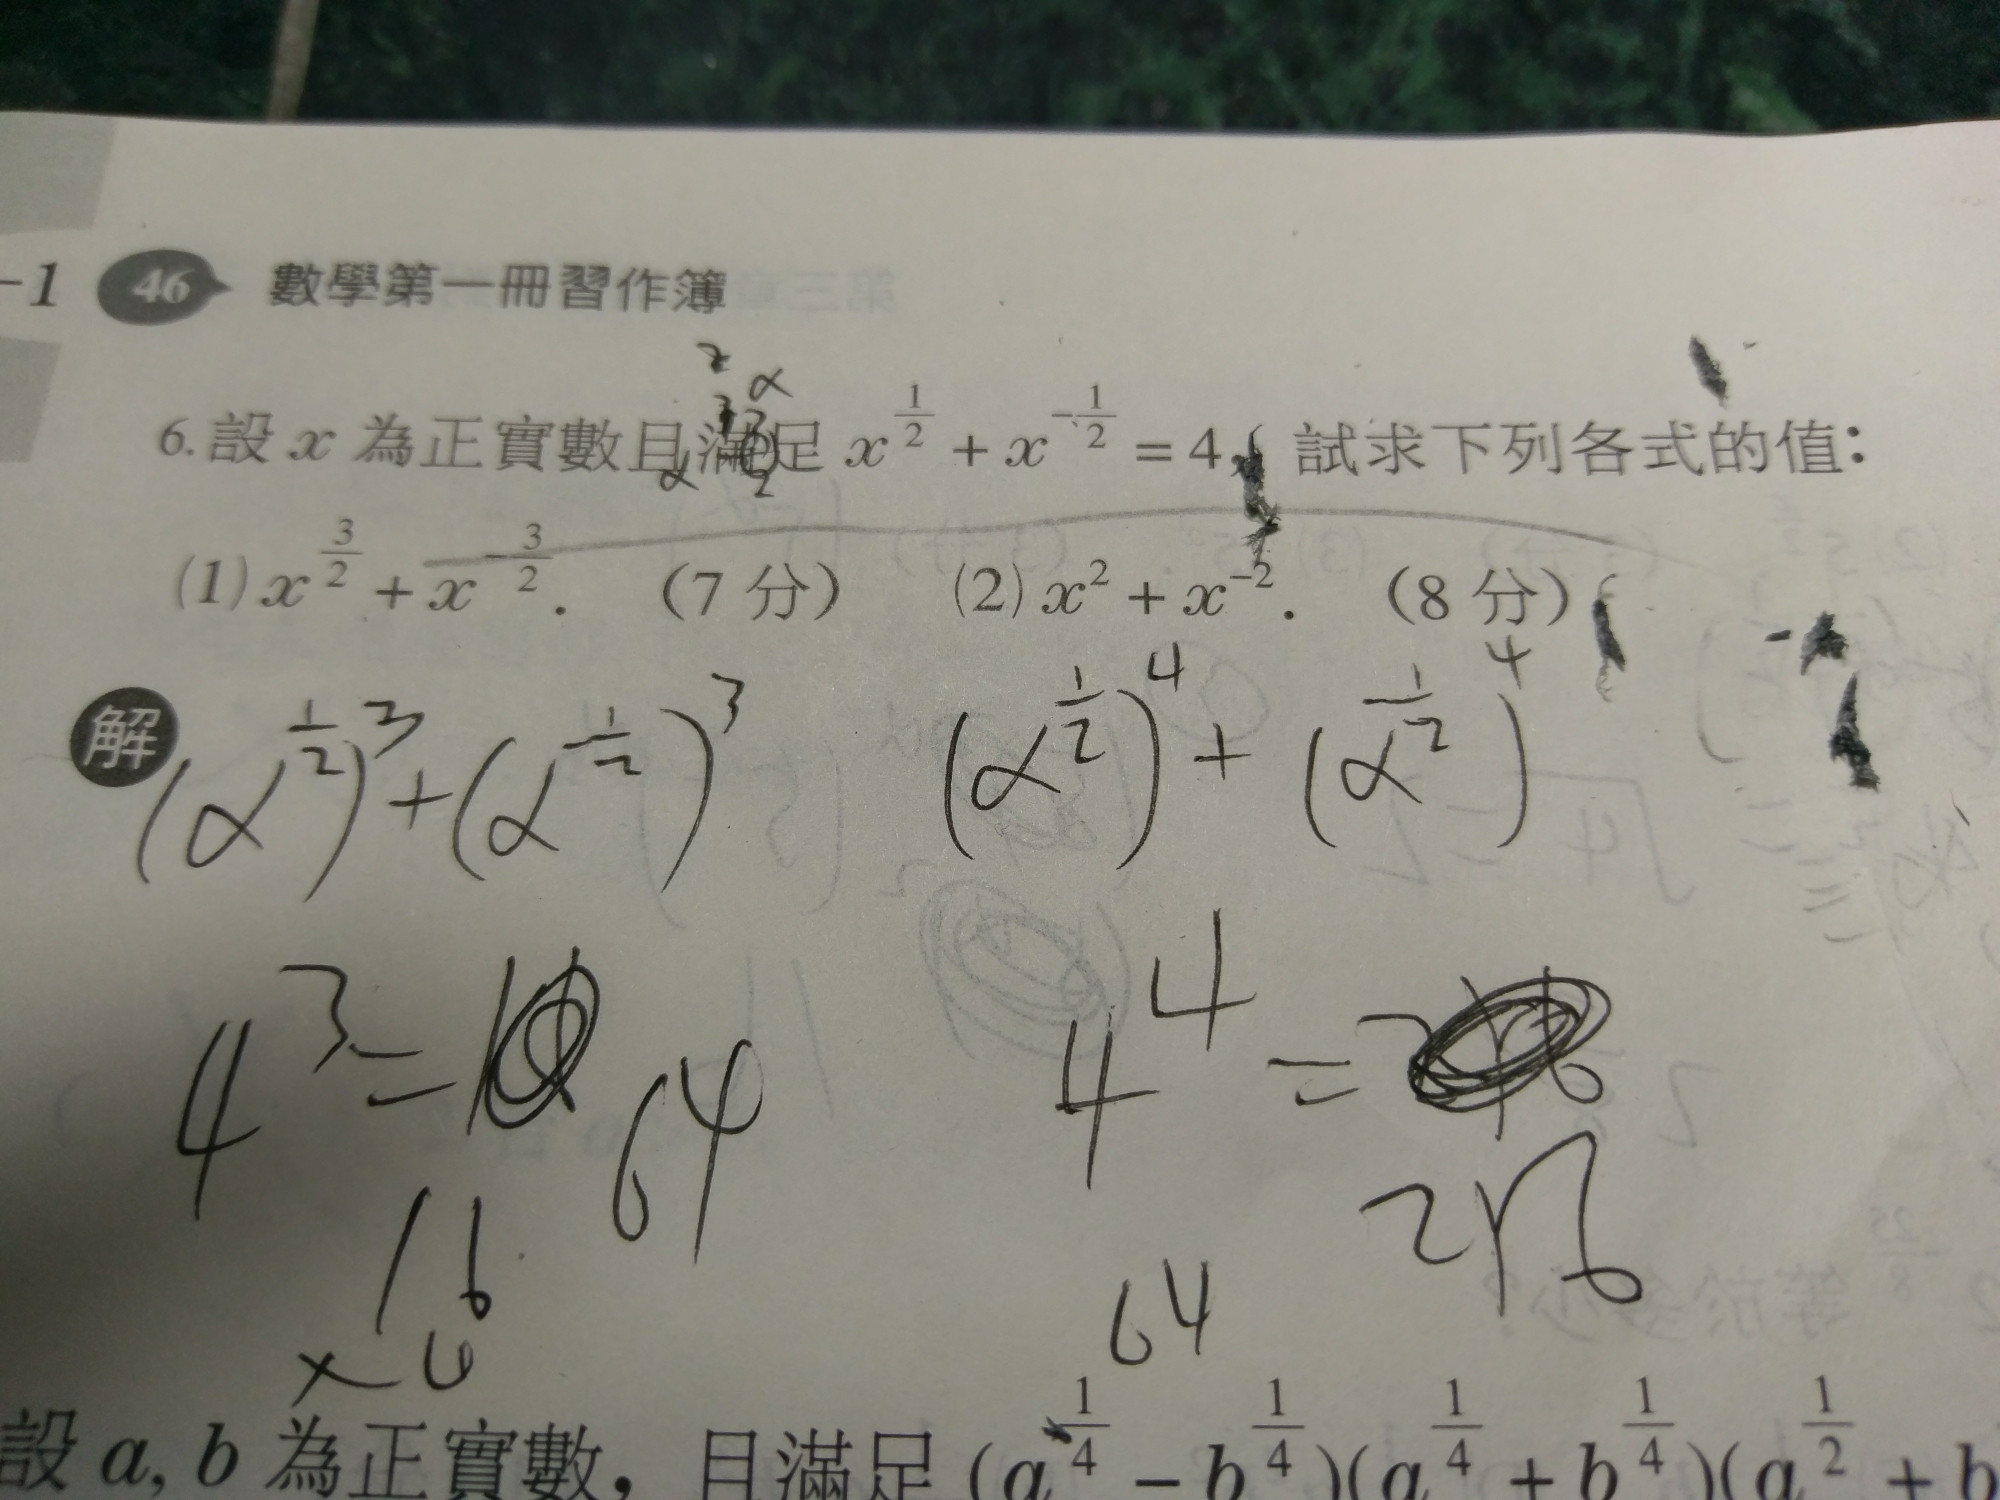 -1 46 數學第一冊習作簿
6. 設 x 為正實數且滿足 x^{\frac{1}{2}} + x^{-\frac{1}{2}} = 4, 試求下列各式的值:
(1) x^{\frac{3}{2}} + x^{-\frac{3}{2}}. (7 分) (2) x^2 + x^{-2}. (8 分)
解
(x^{\frac{1}{2}})^3 + (x^{-\frac{1}{2}})^3 (x^{\frac{1}{2}})^4 + (x^{-\frac{1}{2}})^4
4^3 = 64 4^4 = 256
16
×6 64
設 a, b 為正實數, 且滿足 (a^{\frac{1}{4}} - b^{\frac{1}{4}})(a^{\frac{1}{4}} + b^{\frac{1}{4}})(a^{\frac{1}{2}} + b